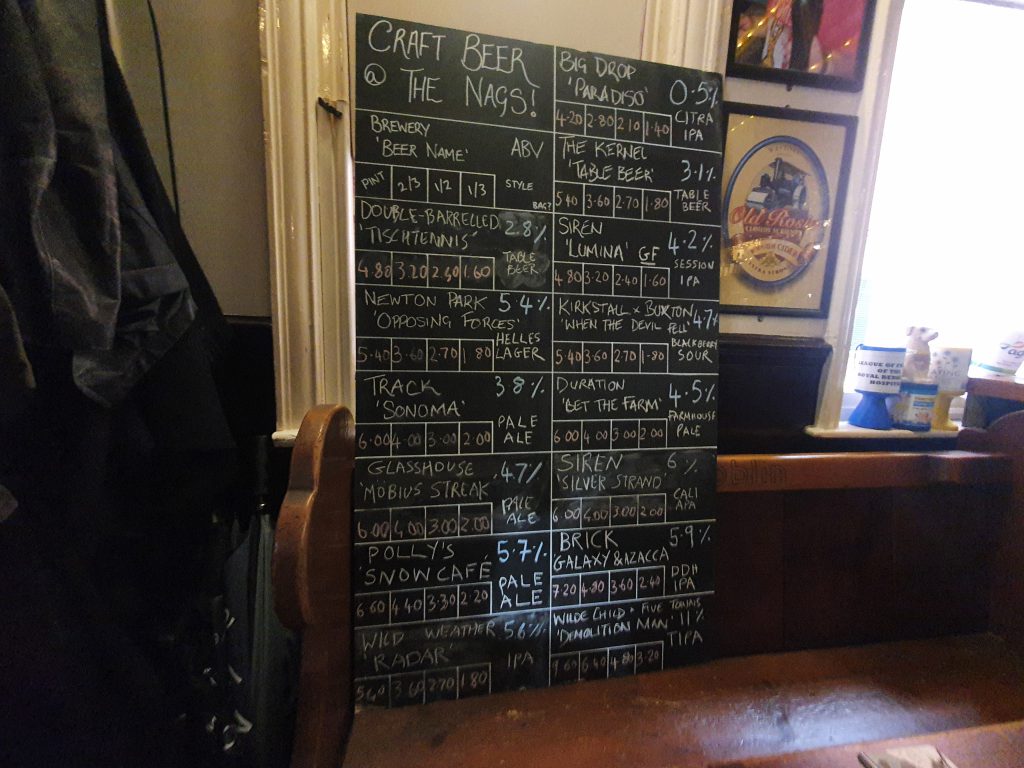 CRAFT BEER
@ THE NAGS!
BREWERY
'BEER NAME' ABV
PINT 2/3 1/2 1/3 STYLE
BAG?
DOUBLE-BARRELLED 2.8%
'TISCHTENNIS'
TABLE
BEER
4.80 3.20 2.40 1.60
NEWTON PARK 5.4%
'OPPOSING FORCES'
HELLES
LAGER
5.40 3.60 2.70 1.80
TRACK 3.8%
'SONOMA'
PALE
ALE
6.00 4.00 3.00 2.00
GLASSHOUSE 4.7%
'MOBIUS STREAK'
PALE
ALE
6.00 4.00 3.00 2.00
POLLY'S 5.7%
'SNOW CAFÉ'
PALE
ALE
6.60 4.40 3.30 2.20
WILD WEATHER 5.6%
'RADAR' IPA
5.40 3.60 2.70 1.80
BIG DROP
'PARADISO' 0.5%
CITRA
IPA
4.20 2.80 2.10 1.40
THE KERNEL
'TABLE BEER' 3.1%
TABLE
BEER
5.40 3.60 2.70 1.80
SIREN 4.2%
'LUMINA' GF
SESSION
IPA
4.80 3.20 2.40 1.60
KIRKSTALL + BUXTON 4.7%
'WHEN THE DEVIL FELL'
BLACKBERRY
SOUR
5.40 3.60 2.70 1.80
DURATION 4.5%
'BET THE FARM'
FARMHOUSE
PALE
6.00 4.00 3.00 2.00
SIREN 6%
'SILVER STRAND'
CALI
APA
6.00 4.00 3.00 2.00
BRICK 5.9%
'GALAXY & AZACCA'
DDH
IPA
7.20 4.80 3.60 2.40
WILDE CHILD + FIVE TOWNS
'DEMOLITION MAN' 11%
TIPA
9.60 6.40 4.80 3.20
Old Rosie
CLOUDY SCRUMPY
CIDER
LEAGUE OF
OF THE
ROYAL
HOSPITAL